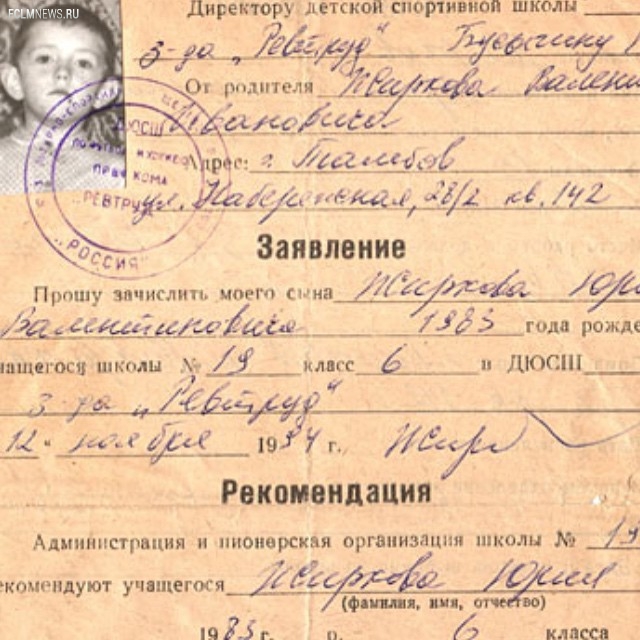 FCLMNEWS.RU
Директору детской спортивной школы
з-да „Ревтруд"
От родителя Жиркова
Ивановича
Адрес: г. Тамбов
ул. Набережная, 28/2 кв. 142
ДЮСШ
"РЕВТРУД"
„РОССИЯ"
Заявление
Прошу зачислить моего сына Жиркова Юри
Валентиновича 1983 года рожде
чащегося школы № 19 класс 6 и ДЮСШ
з-да „Ревтруд"
12 " ноября 1994 г. Жир
Рекомендация
Администрация и пионерская организация школы № 19
екомендуют учащегося Жиркова Юрия
(фамилия, имя, отчество)
1983 г. р. 6 класса